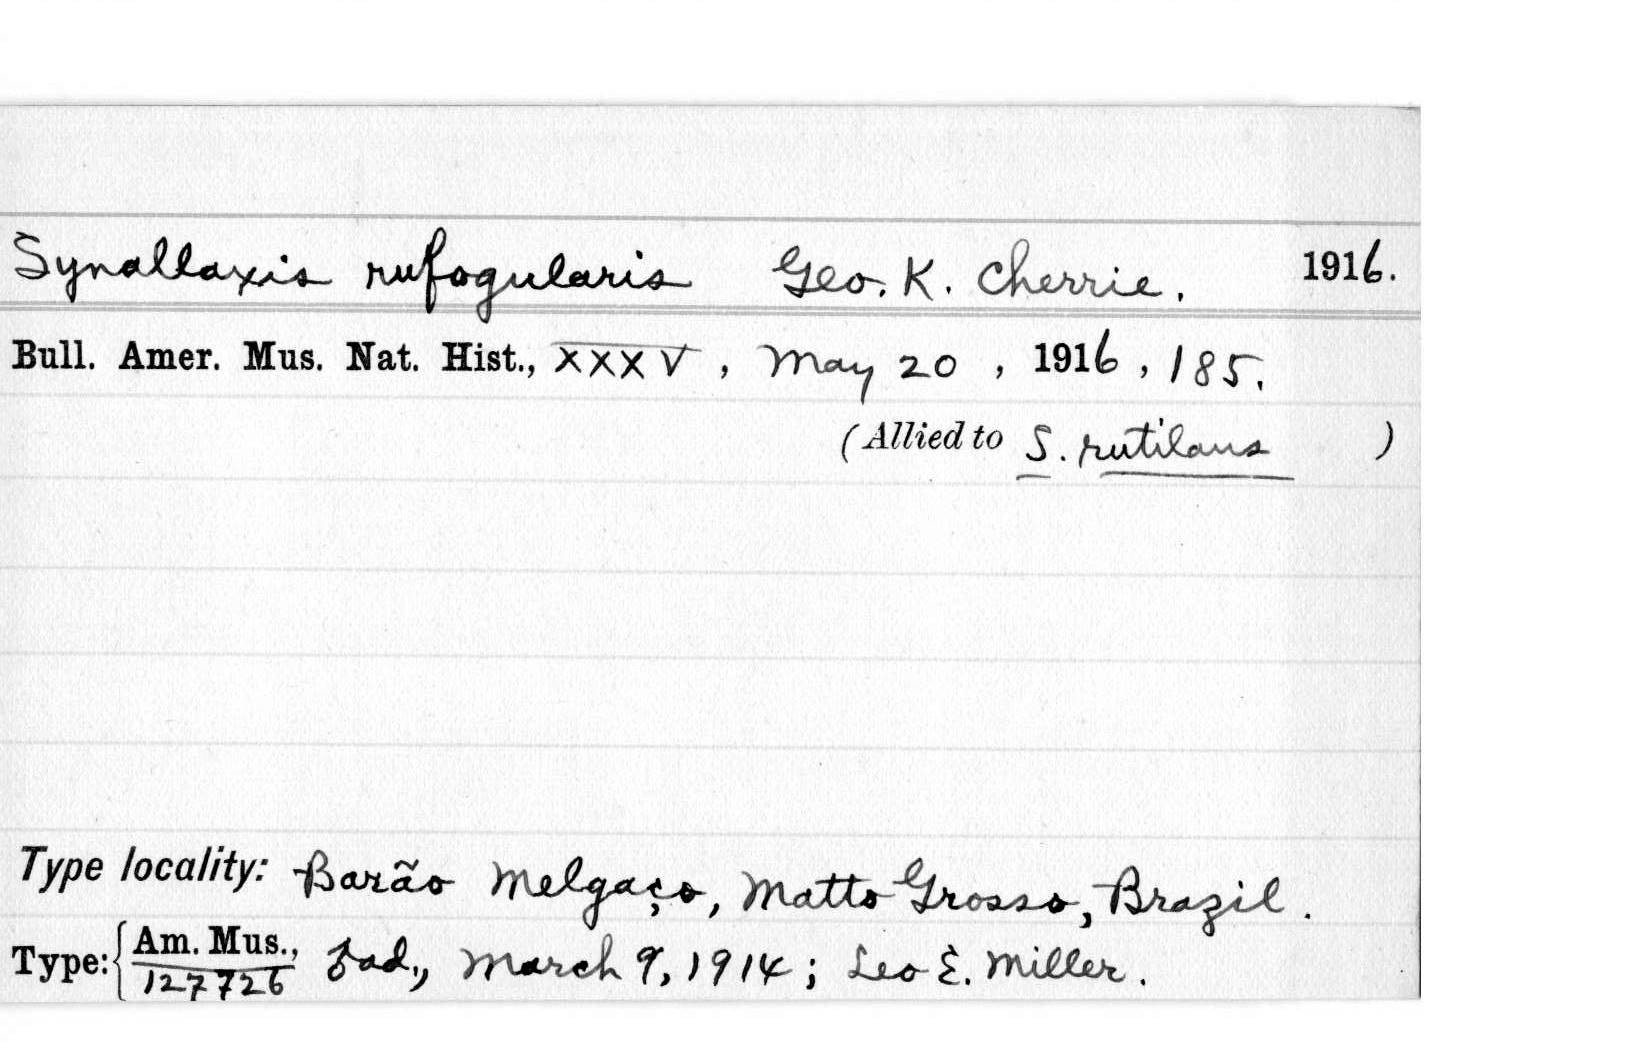 Synallaxis rufogularis Geo. K. Cherrie. 1916.
Bull. Amer. Mus. Nat. Hist., XXXV, May 20, 1916, 185.
(Allied to S. rutilans)
Type locality: Barão Melgaço, Matto Grosso, Brazil.
Type: { Am. Mus., 127726 ad., March 9, 1914; Leo E. Miller.